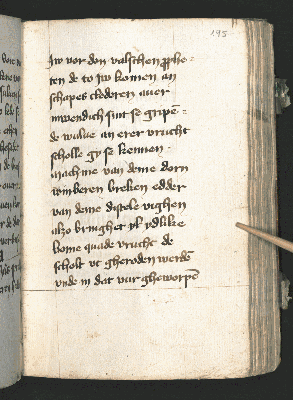 195
Jw vor den valschen prophe-
ten de to jw komen an
schapes clederen auer
inwendich sint se gripē-
de wulue an erer vrucht
scholle gy se kennen.
mach me van deme dorn
winberen breken edder
van deme distele vighen
also bringhet yslik
bome quade vrucht de
scholt vt gheroden werdē
vnde in dat vur gheworpē